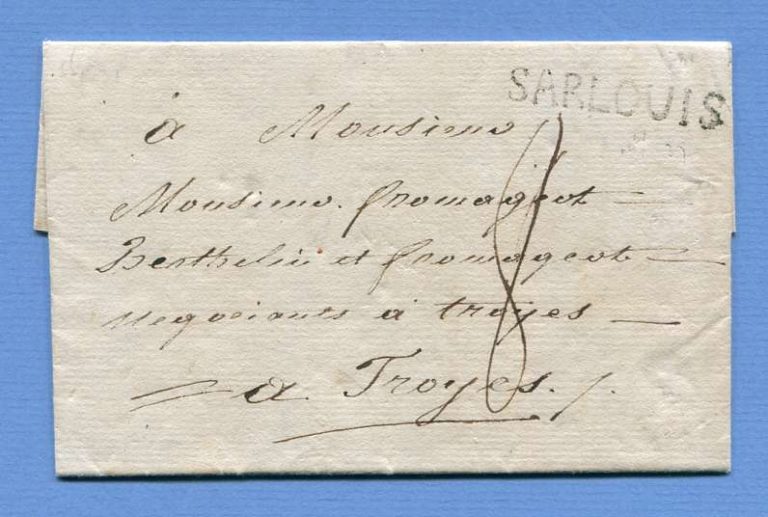 SARLOUIS
à Monsieur
Monsieur fromageot
Berthelin et fromageot
negociants à troyes
a Troyes.
8